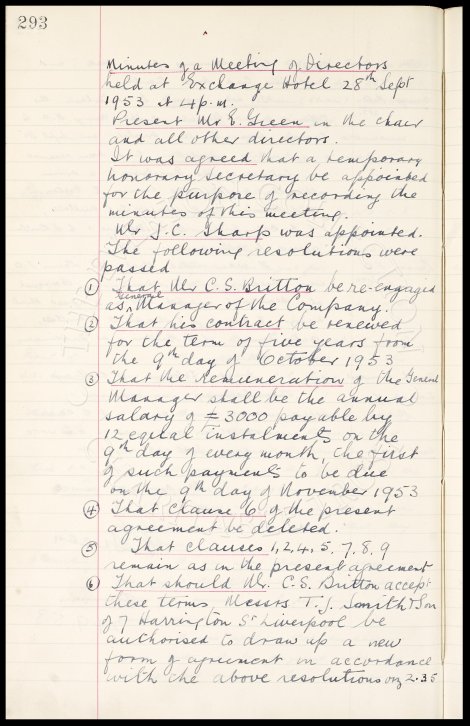 293
Minutes of a Meeting of Directors
held at Exchange Hotel 28th Sept
1953 at 4 p.m.
Present Mr E. Green in the chair
and all other directors.
It was agreed that a temporary
honorary Secretary be appointed
for the purpose of recording the
minutes of this meeting.
Mr J.C. Sharp was appointed.
The following resolutions were
passed
① That Mr C.S. Britton be re-engaged
General
as Manager of the Company.
② That his contract be renewed
for the term of five years from
the 9th day of October 1953
③ That the Remuneration of the General
Manager shall be the annual
salary of £3000 payable by
12 equal instalments on the
9th day of every month, the first
of such payments to be due
on the 9th day of November 1953
④ That clause 6 of the present
agreement be deleted.
⑤ That clauses 1, 2, 4, 5, 7, 8, 9
remain as in the present agreement
⑥ That should Mr. C.S. Britton accept
these terms, Messrs T.J. Smith & Son
of 7 Harrington St Liverpool be
authorised to draw up a new
form of agreement in accordance
with the above resolutions viz 2.3.5